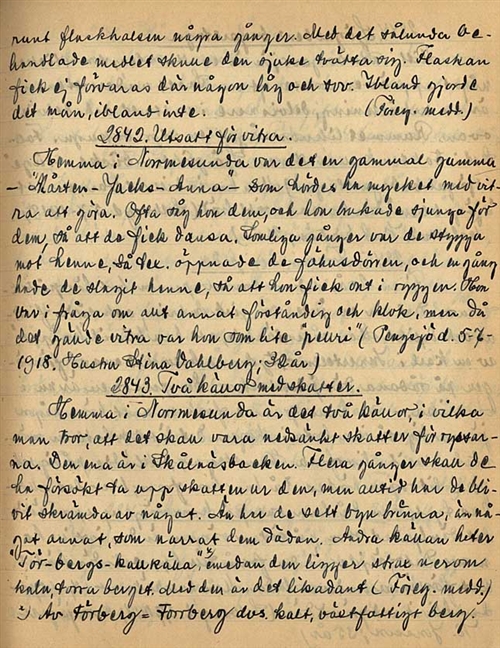 runt flaskhalsen några gånger. Med det sålunda be-
handlade medlet skulle den sjuke tvätta sig. Flaskan
fick ej förvaras där någon låg och sov. Ibland gjorde
det mån, ibland inte. (Föreg. medd.)
2842. Utsatt för vitra.
Hemma i Norrmesunda var det en gammal gumma
- "Mårten-Jacks-Anna" - som hördes ha mycket med vit-
ra att göra. Ofta såg hon dem, och hon brukade sjunga för
dem, så att de fick dansa. Somliga gånger var de stygga
mot henne, så t.ex. öppnade de fähusdörren, och en gång
hade de slagit henne, så att hon fick ont i ryggen. Hon
var i fråga om allt annat förståndig och klok, men då
det gällde vitra var hon som lite "pelluri" (Pengsjö d. 5-7-
1918. Hustru Stina Dahlberg; 32 år.)
2843. Två källor med skatter.
Hemma i Norrmesunda är det två källor, i vilka
man tror, att det skall vara nedsänkt skatter för ryssar-
na. Den ena är i Skålnäsbacken. Flera gånger skall de
ha försökt ta upp skatten ur den, men alltid har de bli-
vit skrämda av något. Än har de sett byn brinna, än nå-
got annat, som narrat dem dädan. Andra källan heter
"Tör-bergs-kallkälla", emedan den ligger strax nerom
kala, torra berget. Med den är det likadant (Föreg. medd.)
Av Törberg = Torrberg dvs. kalt, växtfattigt berg.